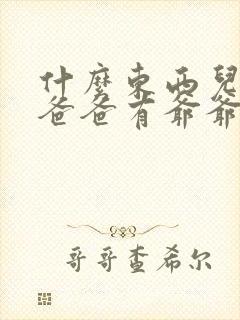 什麼東西兒
爸爸有爺爺
哥哥查希尔